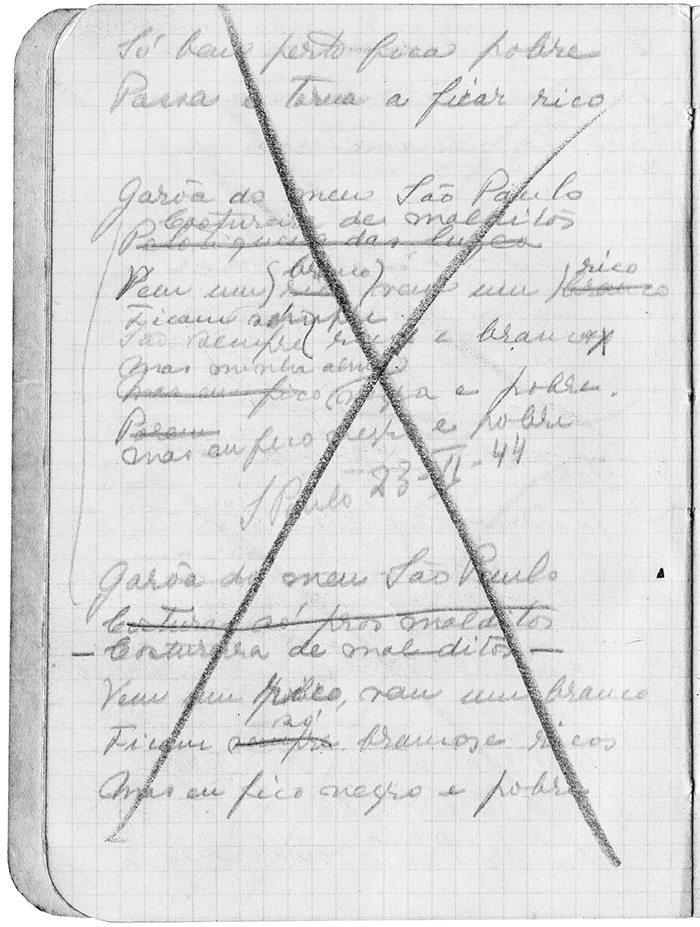 Só bem perto fica pobre
Passa e torna a ficar rico
Garôa do meu São Paulo
Costureira de malditos
das luzes
Vem um (branco) vem um (rico branco
Ficam sempre
São sempre ricos e brancos
Mas minha alma
Mas eu fico negra e pobre.
Porem
Mas eu fico negro e pobre
S Paulo 23-II-44
Garôa do meu São Paulo
Costura só pros malditos
— Costureira de malditos —
Vem um rico, vem um branco
só
Ficam sempre brancos e ricos
Mas eu fico negro e pobre